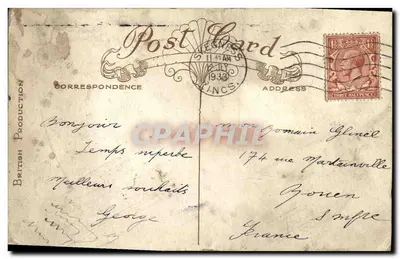 Post Card
CORRESPONDENCE
ADDRESS
BRITISH PRODUCTION
SKEGNESS
1933
LINCS.
Bonjour
Temps superbe
Meilleurs souhaits
George
Romain Glinel
174 rue Martainville
Rouen
S. Infre
France
CPAPHIL